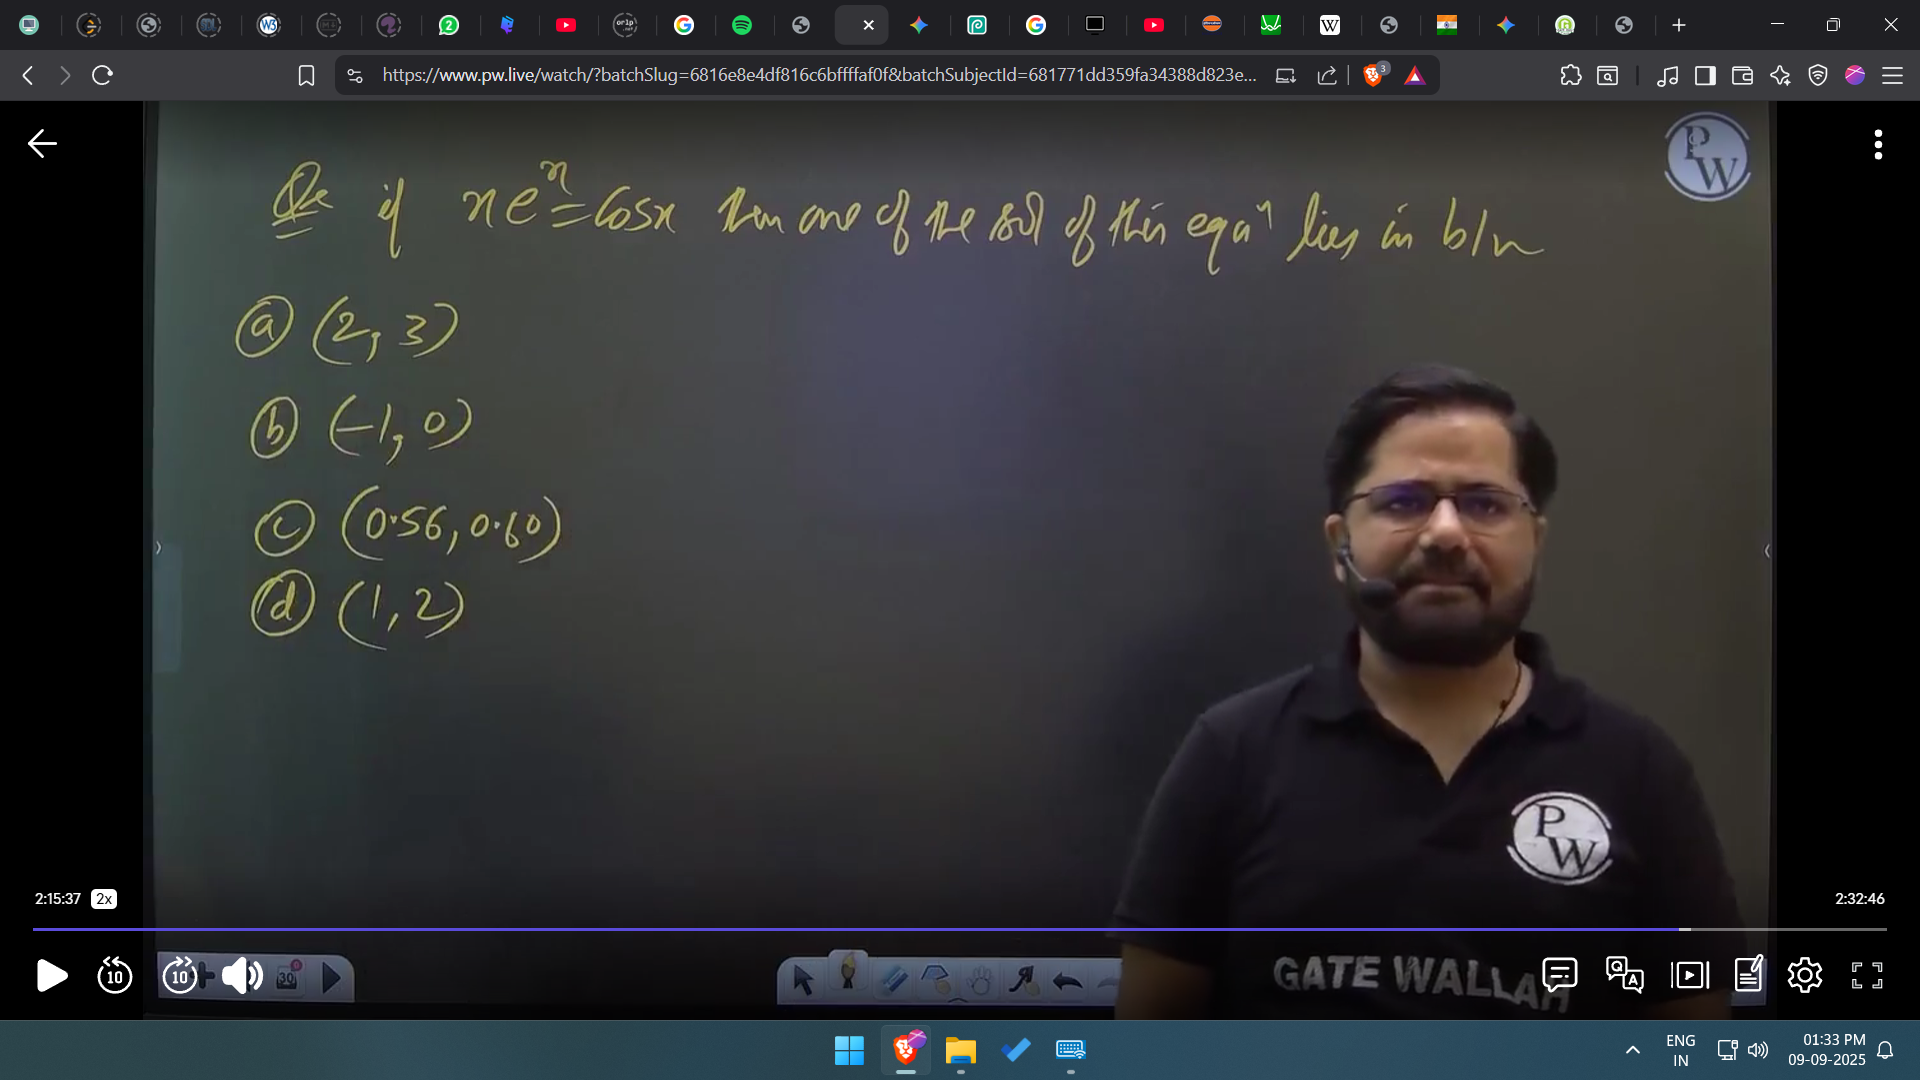 https://www.pw.live/watch/?batchSlug=6816e8e4df816c6bffffaf0f&batchSubjectId=681771dd359fa34388d823e...
3
PW
Qe if xe^x=cosx then one of the sol of this equaⁿ lies in b/w
ⓐ (2, 3)
ⓑ (-1, 0)
ⓒ (0.56, 0.60)
ⓓ (1, 2)
PW
GATE WALLAH
2:15:37 2x
2:32:46
10 10 30
ENG
IN
01:33 PM
09-09-2025